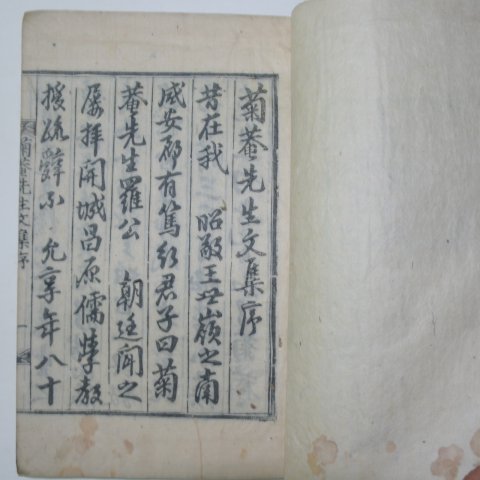 菊菴先生文集序
昔在我 昭敬王世嶺之南
咸安郡有篤行君子曰菊
菴先生羅公 朝廷聞之
屢拜開城昌原儒學教
授疏辭不 允享年八十
菊菴先生文集序